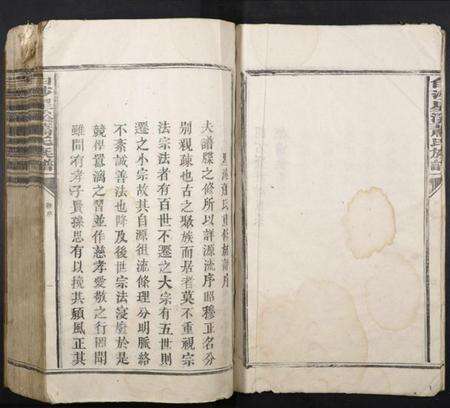 夫譜牒之修所以詳源流序昭穆正名分
别親疎也古之聚族而居者莫不重視宗
法宗法者有百世不遷之大宗有五世則
遷之小宗故其自源徂流條理分明脈絡
不紊誠善法也降及後世宗法寖廢於是
競學置滴之習並作慈孝愛敬之行罔聞
雖間有孝子賢孫思有以挽其頹風正其